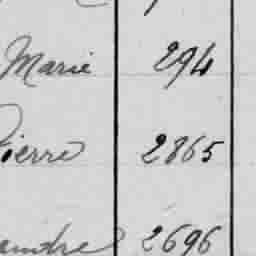 Marie 294
Pierre 2865
andre 2696